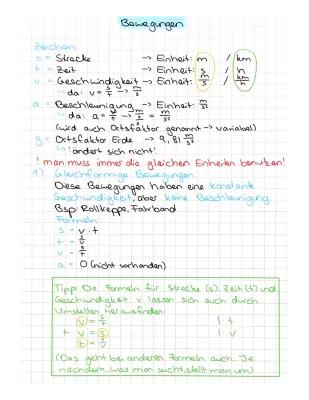 Bewegungen
Zeichen:
s = Strecke → Einheit: m / km
t = Zeit → Einheit: s / h
v = Geschwindigkeit → Einheit: m/s / km/h
↳ da: v = s/t → m/s
a = Beschleunigung → Einheit: m/s²
↳ da: a = v/t → m/s²
(wird auch Ortsfaktor genannt → variabel)
g = Ortsfaktor Erde → 9,81 m/s²
↳ ändert sich nicht!
! man muss immer die gleichen Einheiten benutzen!
1) Gleichförmige Bewegungen
Diese Bewegungen haben eine konstante
Geschwindigkeit, aber keine Beschleunigung.
Bsp: Rolltreppe, Fahrband
Formeln:
s = v · t
t = s/v
v = s/t
a = 0 (nicht vorhanden)
Tipp: Die Formeln für Strecke (s), Zeit (t) und
Geschwindigkeit v lassen sich auch durch
Umstellen herausfinden:
v = s/t | · t
t · v = s | : v
t = s/v
(Das geht bei anderen Formeln auch. Je
nachdem, was man sucht, stellt man um)